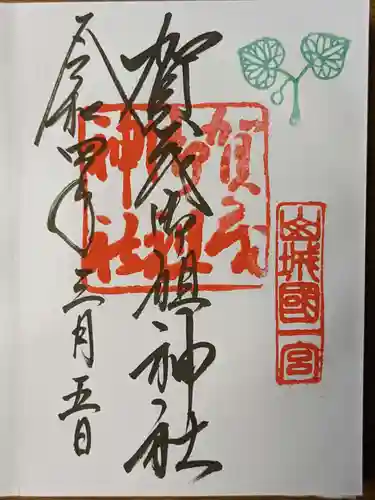 山城國一宮
賀茂御祖神社
賀茂御祖神社
令和四年三月五日